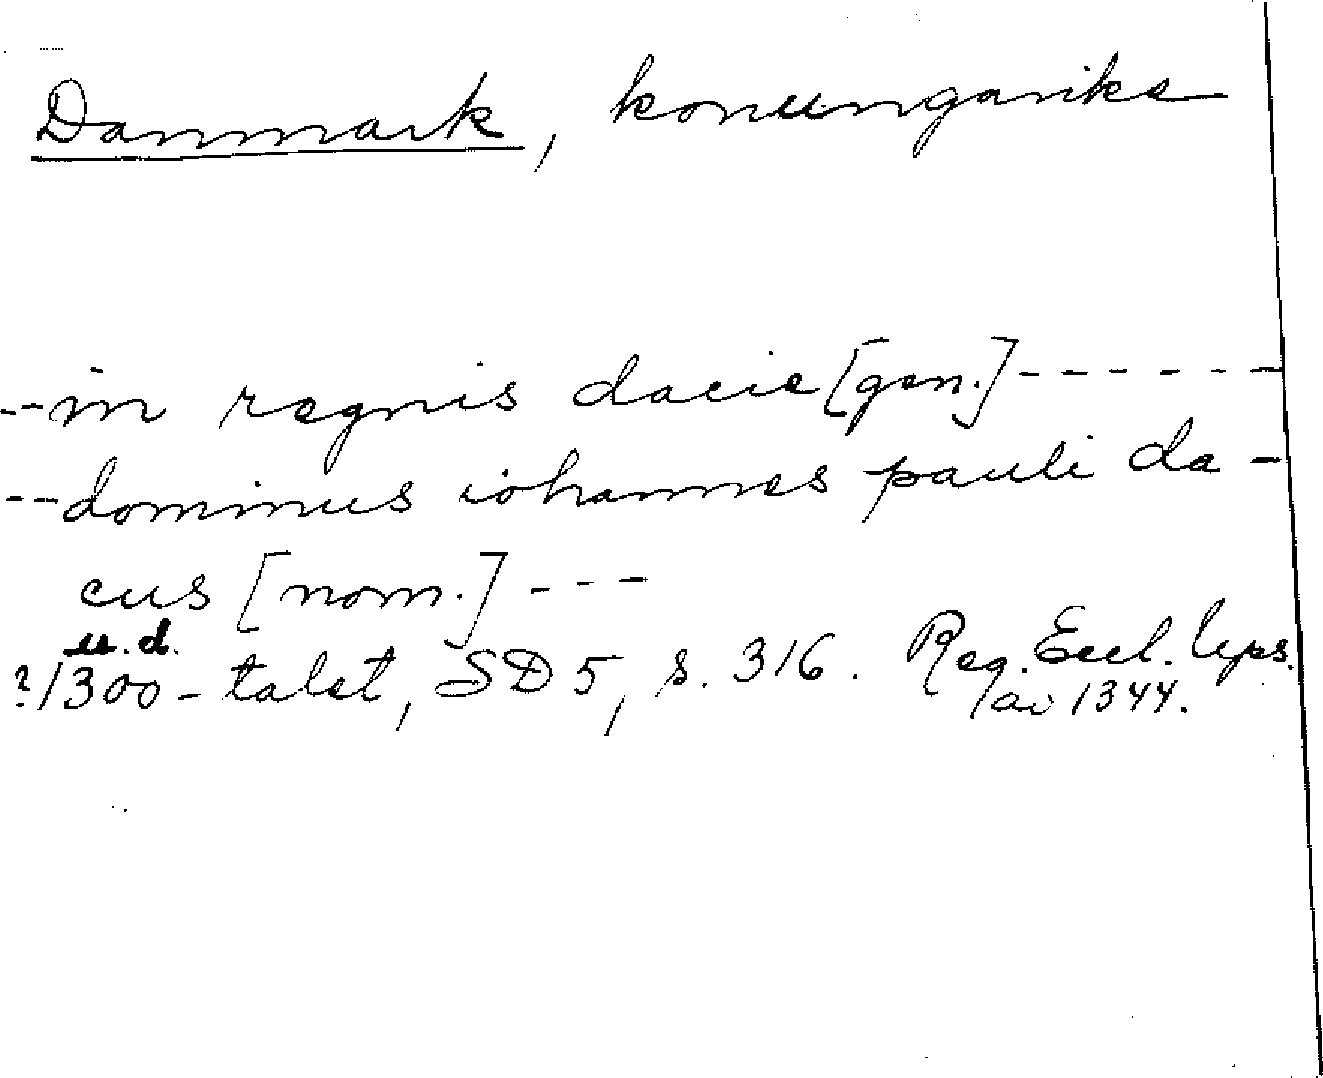 Danmark, konungarike
--in regnis dacie [gen.]------
--dominus iohannes pauli da-
cus [nom.]---
u.d.
?/1300-talet, SD 5, s. 316. Reg. Eccl. Ups.
av 1344.